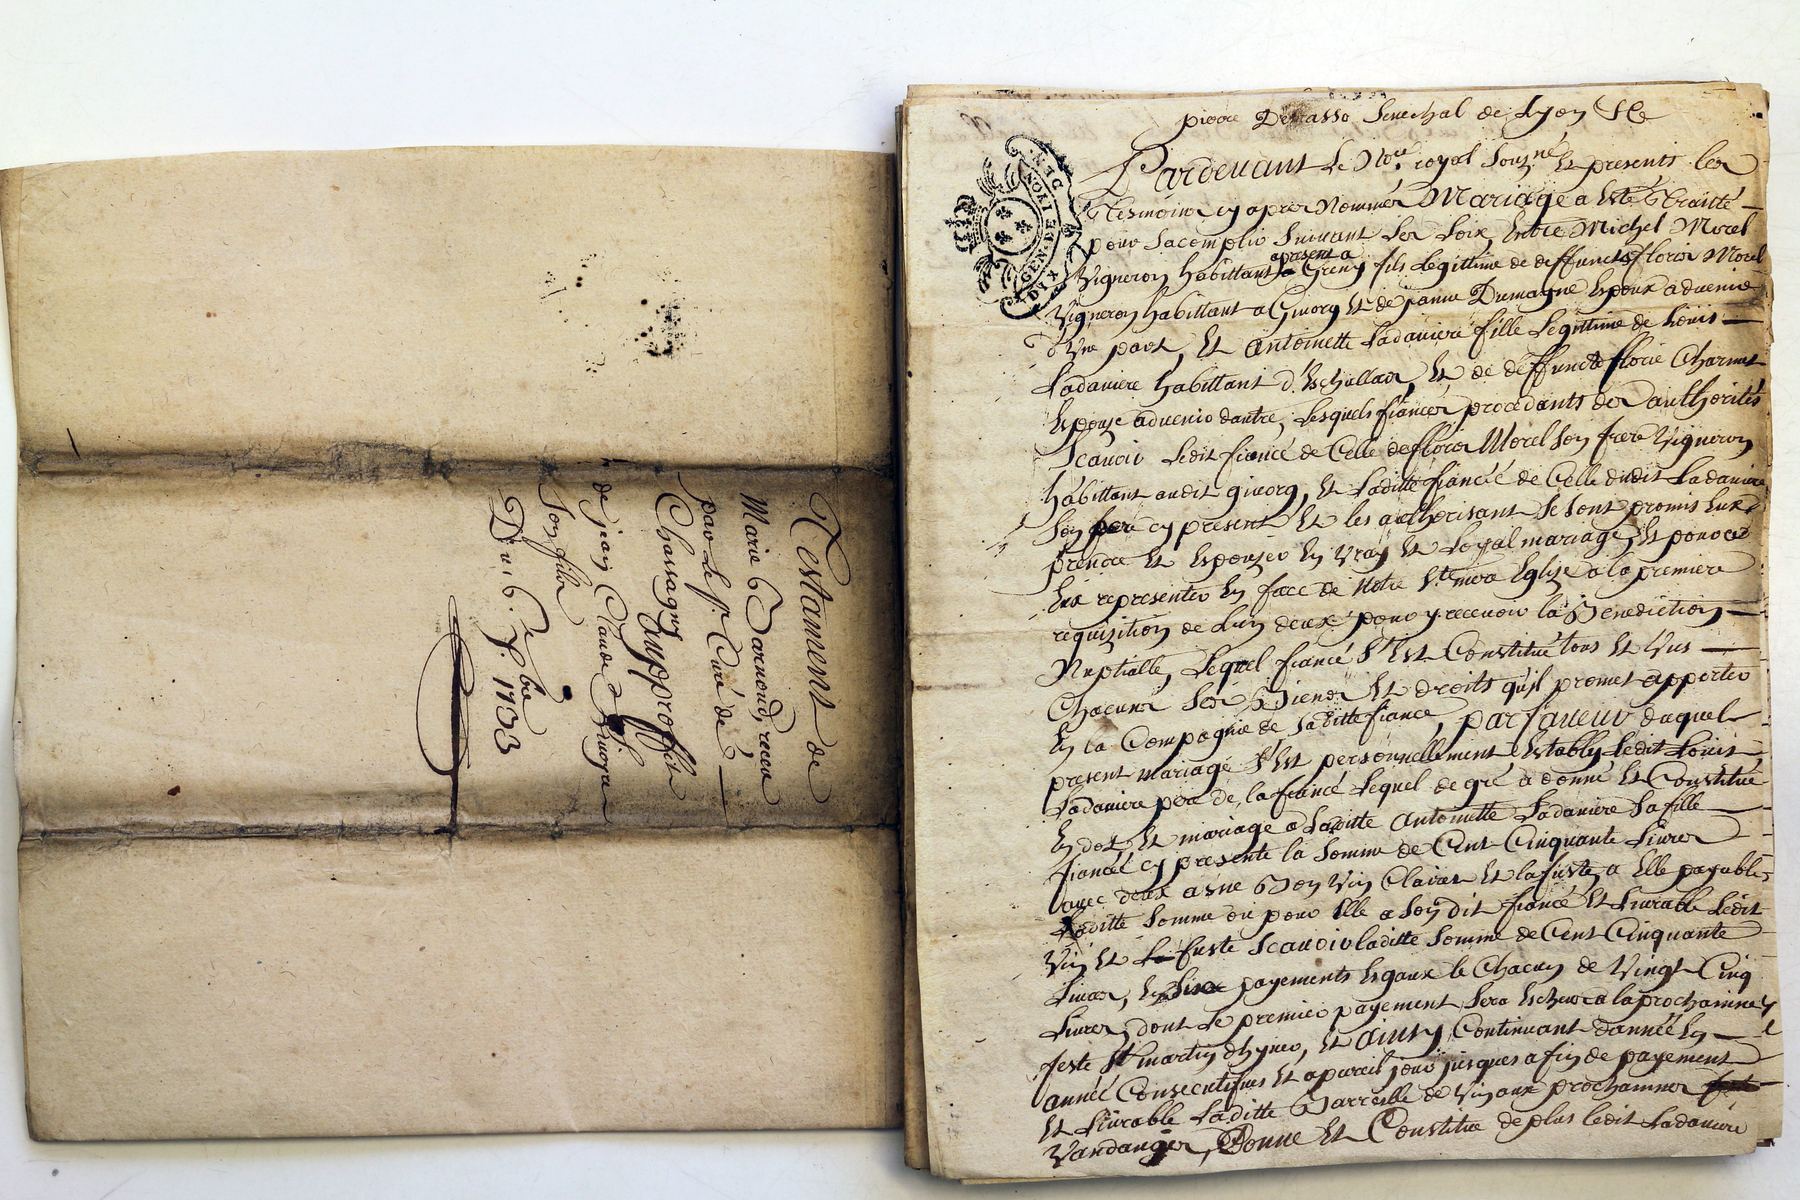 Testament de
Marie Barnoud, receu
par le Sr. Curé de
Chassagny
au proffit
de jean Claude
Son fils
Du 6e. xbre
1.1733
Senechal de Lyon
GEN. DE LYON
DIX DEN.
Pardevant le Nore. royal Sousné. Et presents les
Tesmoins cy apres Nommés Mariage a Esté Traitté
pour Sacomplir Suivant les Loix, Entre Michel Morel
apresent a
Vigneron habittant a Greny fils Legittime de deffuncts floris Morel
Vigneron habittant a Givorg Et de janne Dumagne Espoux advenir
d'Vne part, Et Antoinette Ladaviere fille Legittime de Louis
Ladaviere habittant d'Eschallas, Et de deffuncte florie Charmet
Espouse advenir dautre, Lesquels fiancés procedants des authorités
Scavoir Ledit fiancé de Celle de floris Morel Son frere Vigneron
habittant audit givorg, Et Laditte fiancée de Celle dudit Ladaviere
Son pere cy present Et les authorisant Se Sont promis Eux
prendre Et Espouser En Vray Et Loyal mariage, Et pour ce
Eux representer En face de Notre Ste. mere Eglize a la premiere
requizition de Lun deux pour y recevoir la Benediction
Nuptialle, Lequel fiancé S'Est Constitué tous Et Vns
Chacuns Ses Biens Et droits qu'il promet apporter
En la Compagnie de Laditte fiancée, par faveur duquel
present mariage S'Est personnellement Estably Ledit Louis
Ladaviere pere de la fiancée Lequel de gré a donné Et Constitué
En dot Et mariage a Laditte Antoinette Ladaviere Sa fille
fiancée cy presente la Somme de Cent Cinquante Livres
avec deux asne Bon Vin Clairet Et la fuste, a Elle payable
Laditte Somme ou pour Elle a Son dit fiancé Et Livrable Ledit
Vin Et La fuste Scavoir laditte Somme de Cent Cinquante
Livres, En Six payements Esgaux le Chacun de Vingt Cinq
Livres, dont Le premier payement Sera Escheus a la prochaine
feste St martin dhyver, Et ainsy Continuant dannée En
année Consecutifves Et a pareil jour jusques a fin de payement
Et Livrable Laditte Barreille de Vin aux prochaines
Vandanges, Donne Et Constitue de plus Ledit Ladaviere